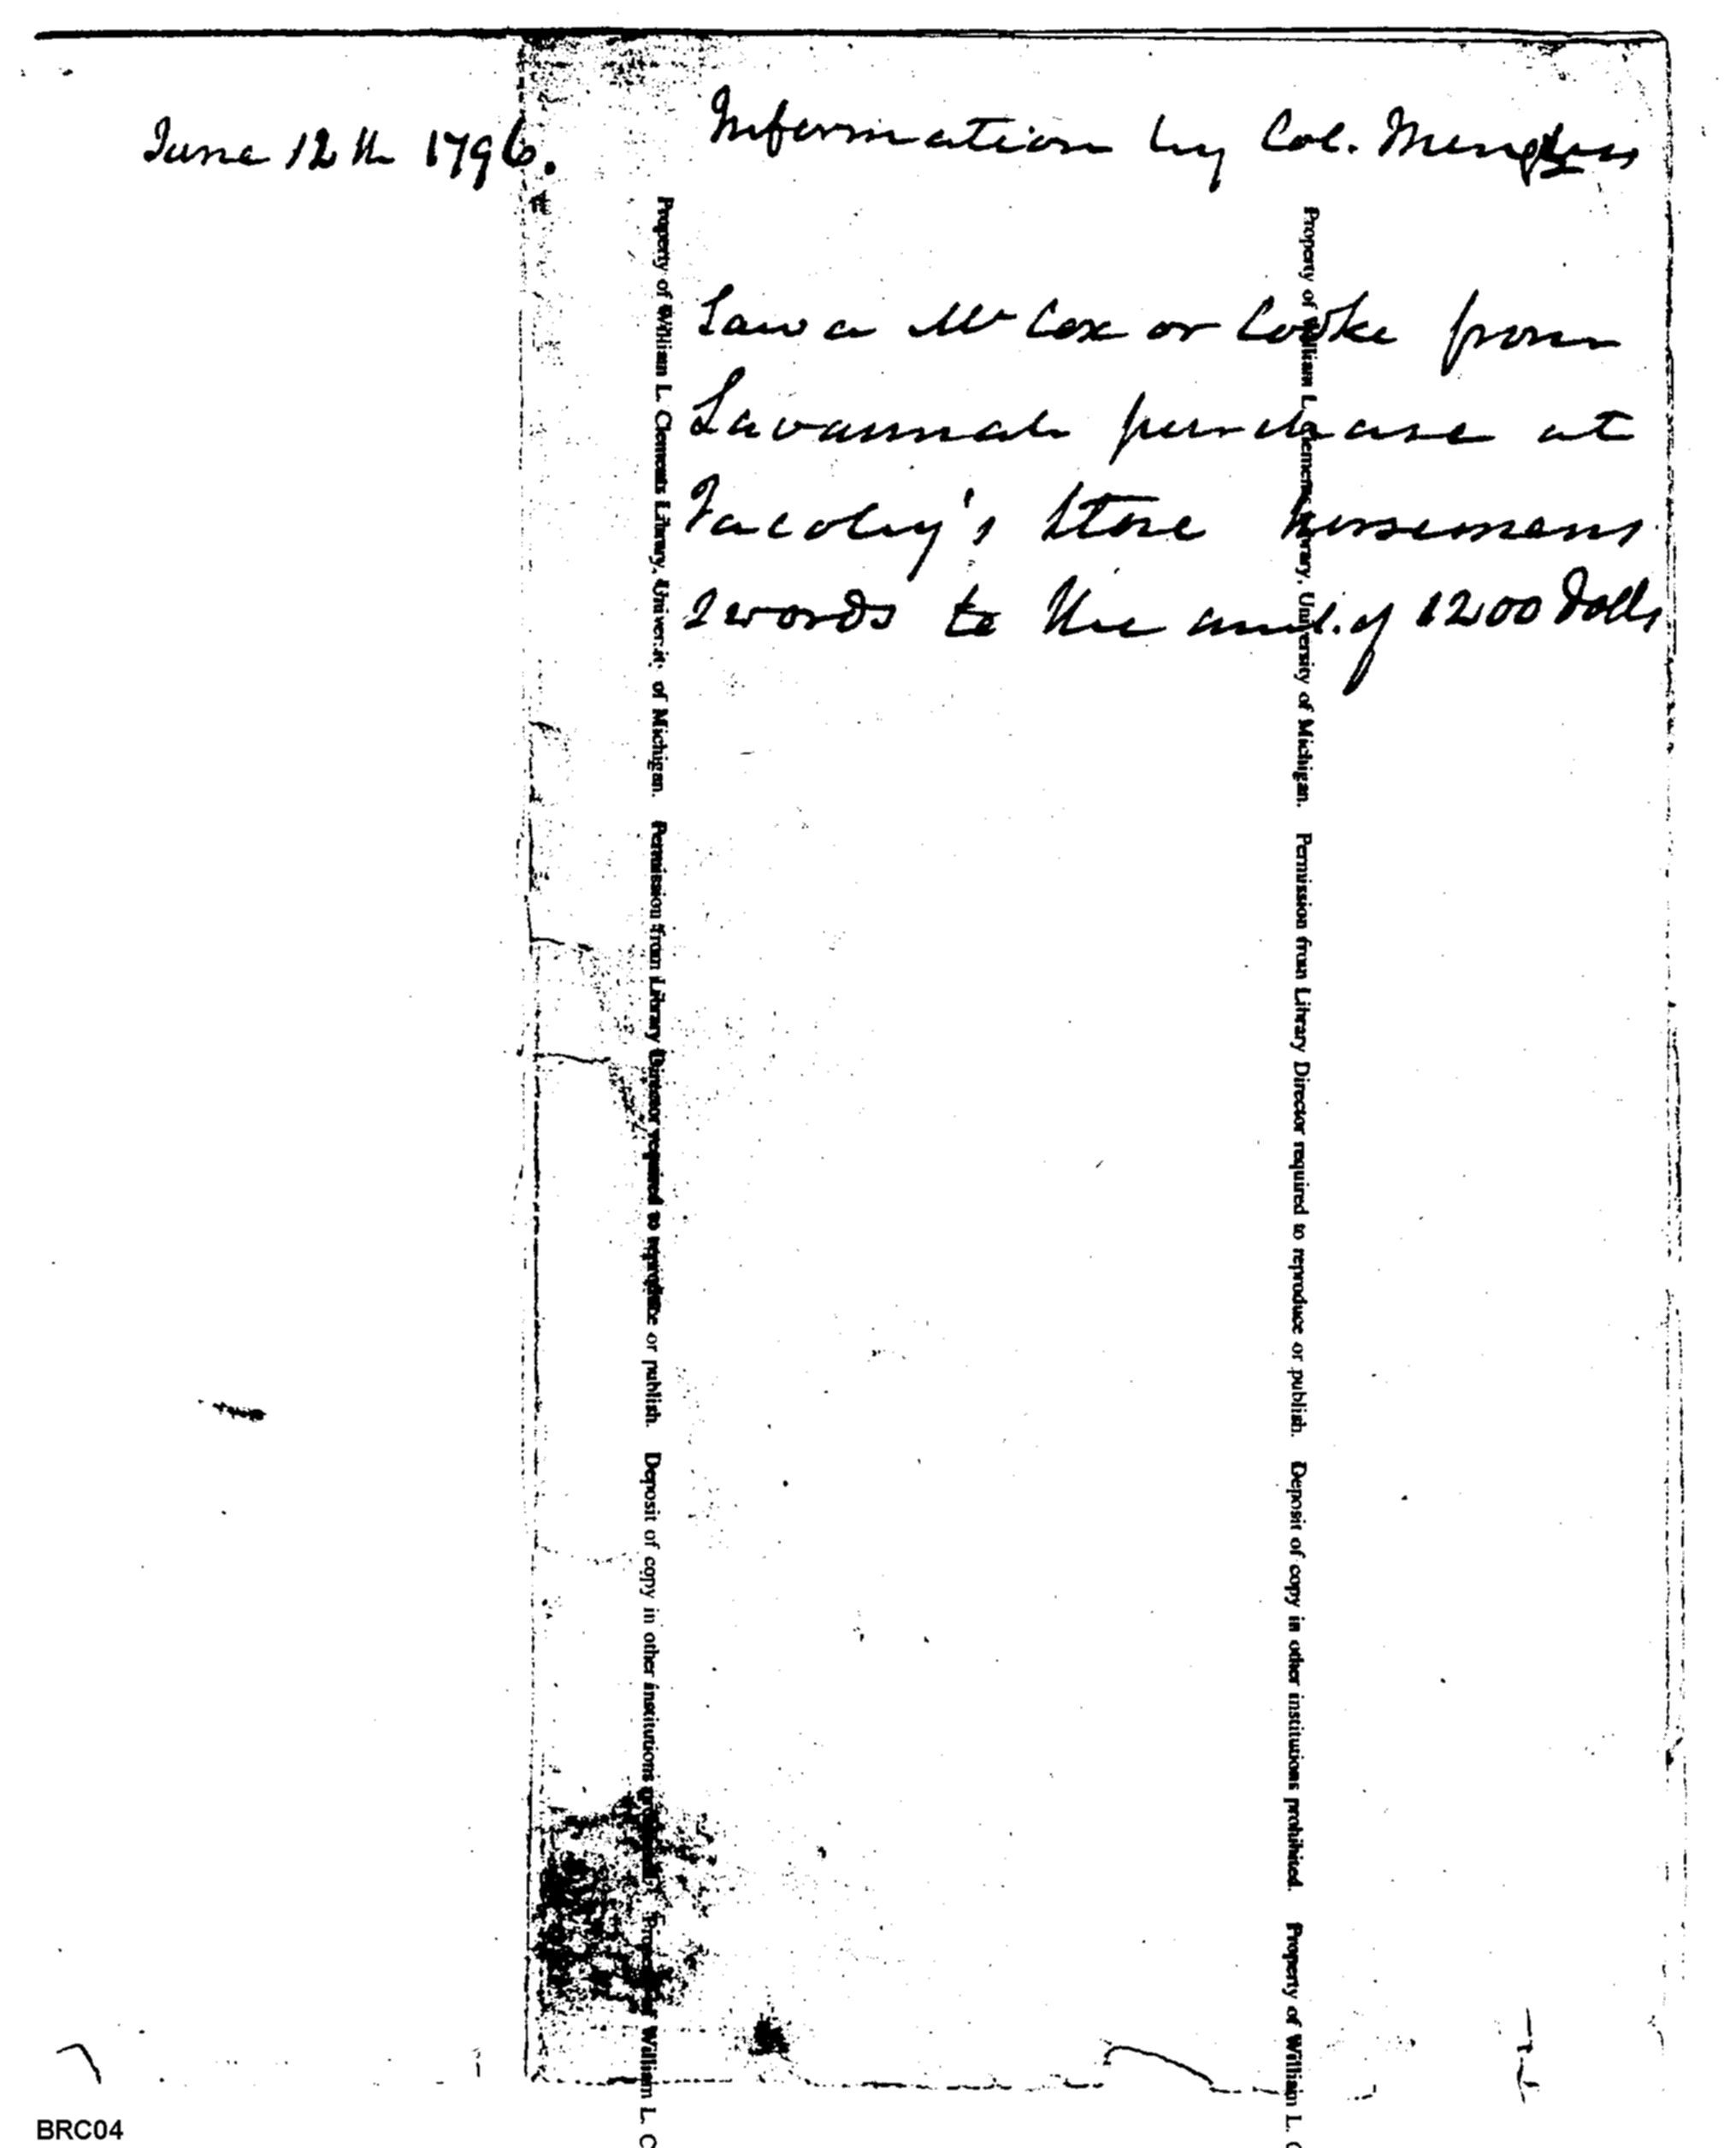 June 12th 1796.
Information by Col.
Saw a Mr Cox or Cooke from
Savannah purchase at
Jacoby's Store horsemans
swords to the amt. of 1200 Dolls
Property of William L. Clements Library, University of Michigan. Permission from Library Director required to reproduce or publish. Deposit of copy in other institutions prohibited. Property of William L. C
Property of William L. Clements Library, University of Michigan. Permission from Library Director required to reproduce or publish. Deposit of copy in other institutions prohibited. Property of William L. C
BRC04